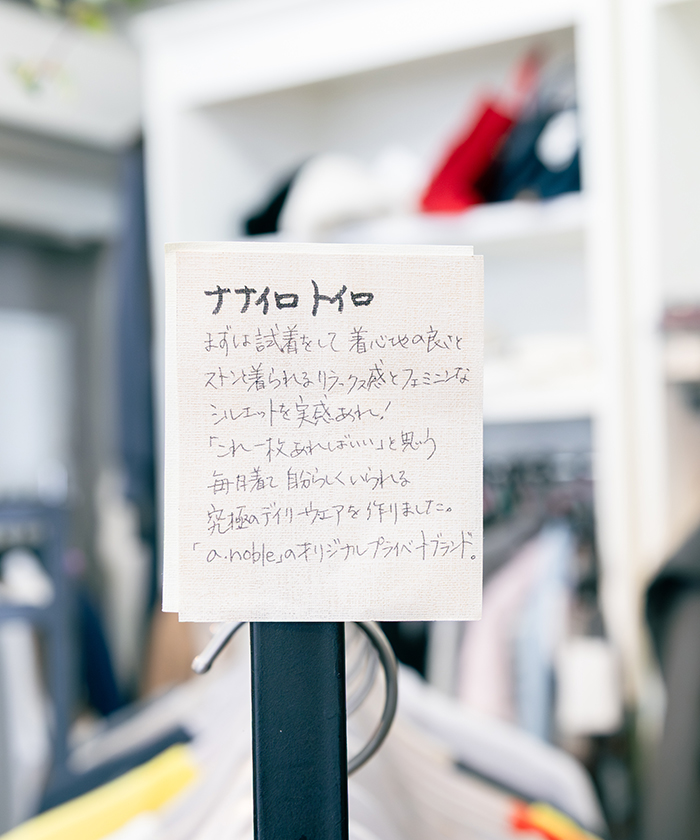 ナナイロ トイロ
まずは試着をして 着心地の良さと
ストンと着られるリラックス感とフェミニンな
シルエットを実感あれ!
「これ一枚あればいい」と思う
毎日着て 自分らしくいられる
究極のデイリーウェアを作りました。
「a.noble」のオリジナルプライベートブランド。